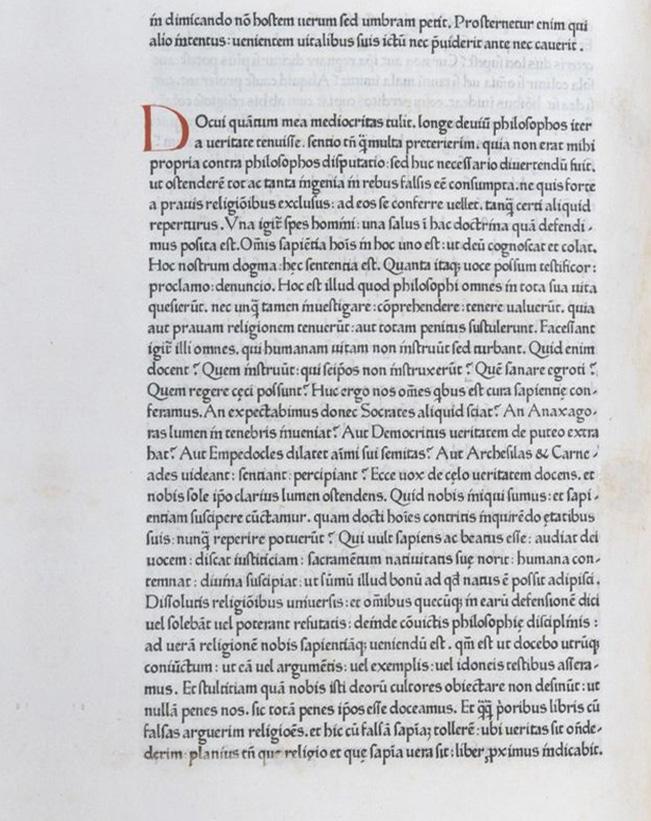 in dimicando nō hostem uerum sed umbram petit. Prosternetur enim qui
alio intentus: uenientem uitalibus suis ictū nec p̄uiderit ante nec cauerit.
DOcui quātum mea mediocritas tulit. longe deuiū philosophos iter
a ueritate tenuisse. sentio tn̄ q̄multa preterierim. quia non erat mihi
propria contra philosophos disputatio: sed huc necessario diuertendū fuit.
ut ostenderē tot ac tanta ingenia in rebus falsis eē consumpta. ne quis forte
a prauis religiōibus exclusus: ad eos se conferre uellet. tanq̄ certi aliquid
reperturus. Vna igit̄ spes homini: una salus ī hac doctrina quā defendi-
mus posita est. Om̄is sapiētia hoīs in hoc uno est: ut deū cognoscat et colat.
Hoc nostrum dogma: hęc sententia est. Quanta itaq; uoce possum testificor:
proclamo: denuncio. Hoc est illud quod philosophi omnes in tota sua uita
quesierūt. nec unq̄ tamen inuestigare: cōprehendere: tenere ualuerūt. quia
aut prauam religionem tenuerūt: aut totam penitus sustulerunt. Facessant
igit̄ illi omnes. qui humanam uitam non instruūt sed turbant. Quid enim
docent? Quem instruūt: qui seip̄os non instruxerūt? Quē sanare egroti?
Quem regere cęci possunt? Huc ergo nos om̄es qbus est cura sapientię con-
feramus. An expectabimus donec Socrates aliquid sciat? An Anaxago-
ras lumen in tenebris inueniat? Aut Democritus ueritatem de puteo extra
hat? Aut Empedocles dilatet aīmi sui semitas? Aut Archesilas & Carne-
ades uideant: sentiant: percipiant? Ecce uox de cęlo ueritatem docens. et
nobis sole ip̄o clarius lumen ostendens. Quid nobis iniqui sumus: et sapi-
entiam suscipere cūctamur. quam docti hoīes contritis inquirēdo ętatibus
suis: nunq̄ reperire potuerūt? Qui uult sapiens ac beatus esse: audiat dei
uocem: discat iusticiam: sacramētum natiuitatis suę norit: humana con-
temnat: diuina suscipiat: ut sūmū illud bonū ad qd̄ natus ē possit adipisci.
Dissolutis religiōibus uniuersis: et om̄ibus quecūq; in earū defensionē dici
uel solebāt uel poterant refutatis: deinde cōuictis philosophię disciplinis:
ad uerā religionē nobis sapientiāq; ueniendū est. qm̄ est ut docebo utrūq;
coniūctum: ut eā uel argumētis: uel exemplis: uel idoneis testibus assera-
mus. Et stultitiam quā nobis isti deorū cultores obiectare non desinūt: ut
nullā penes nos. sic totā penes ip̄os esse doceamus. Et q̄q̄ p̄oribus libris cū
falsas arguerim religioēs. et hic cū falsā sapīaʒ tollerē: ubi ueritas sit onde-
derim: planius tn̄ quę religio et quę sapīa uera sit: liber ꝓximus indicabit.